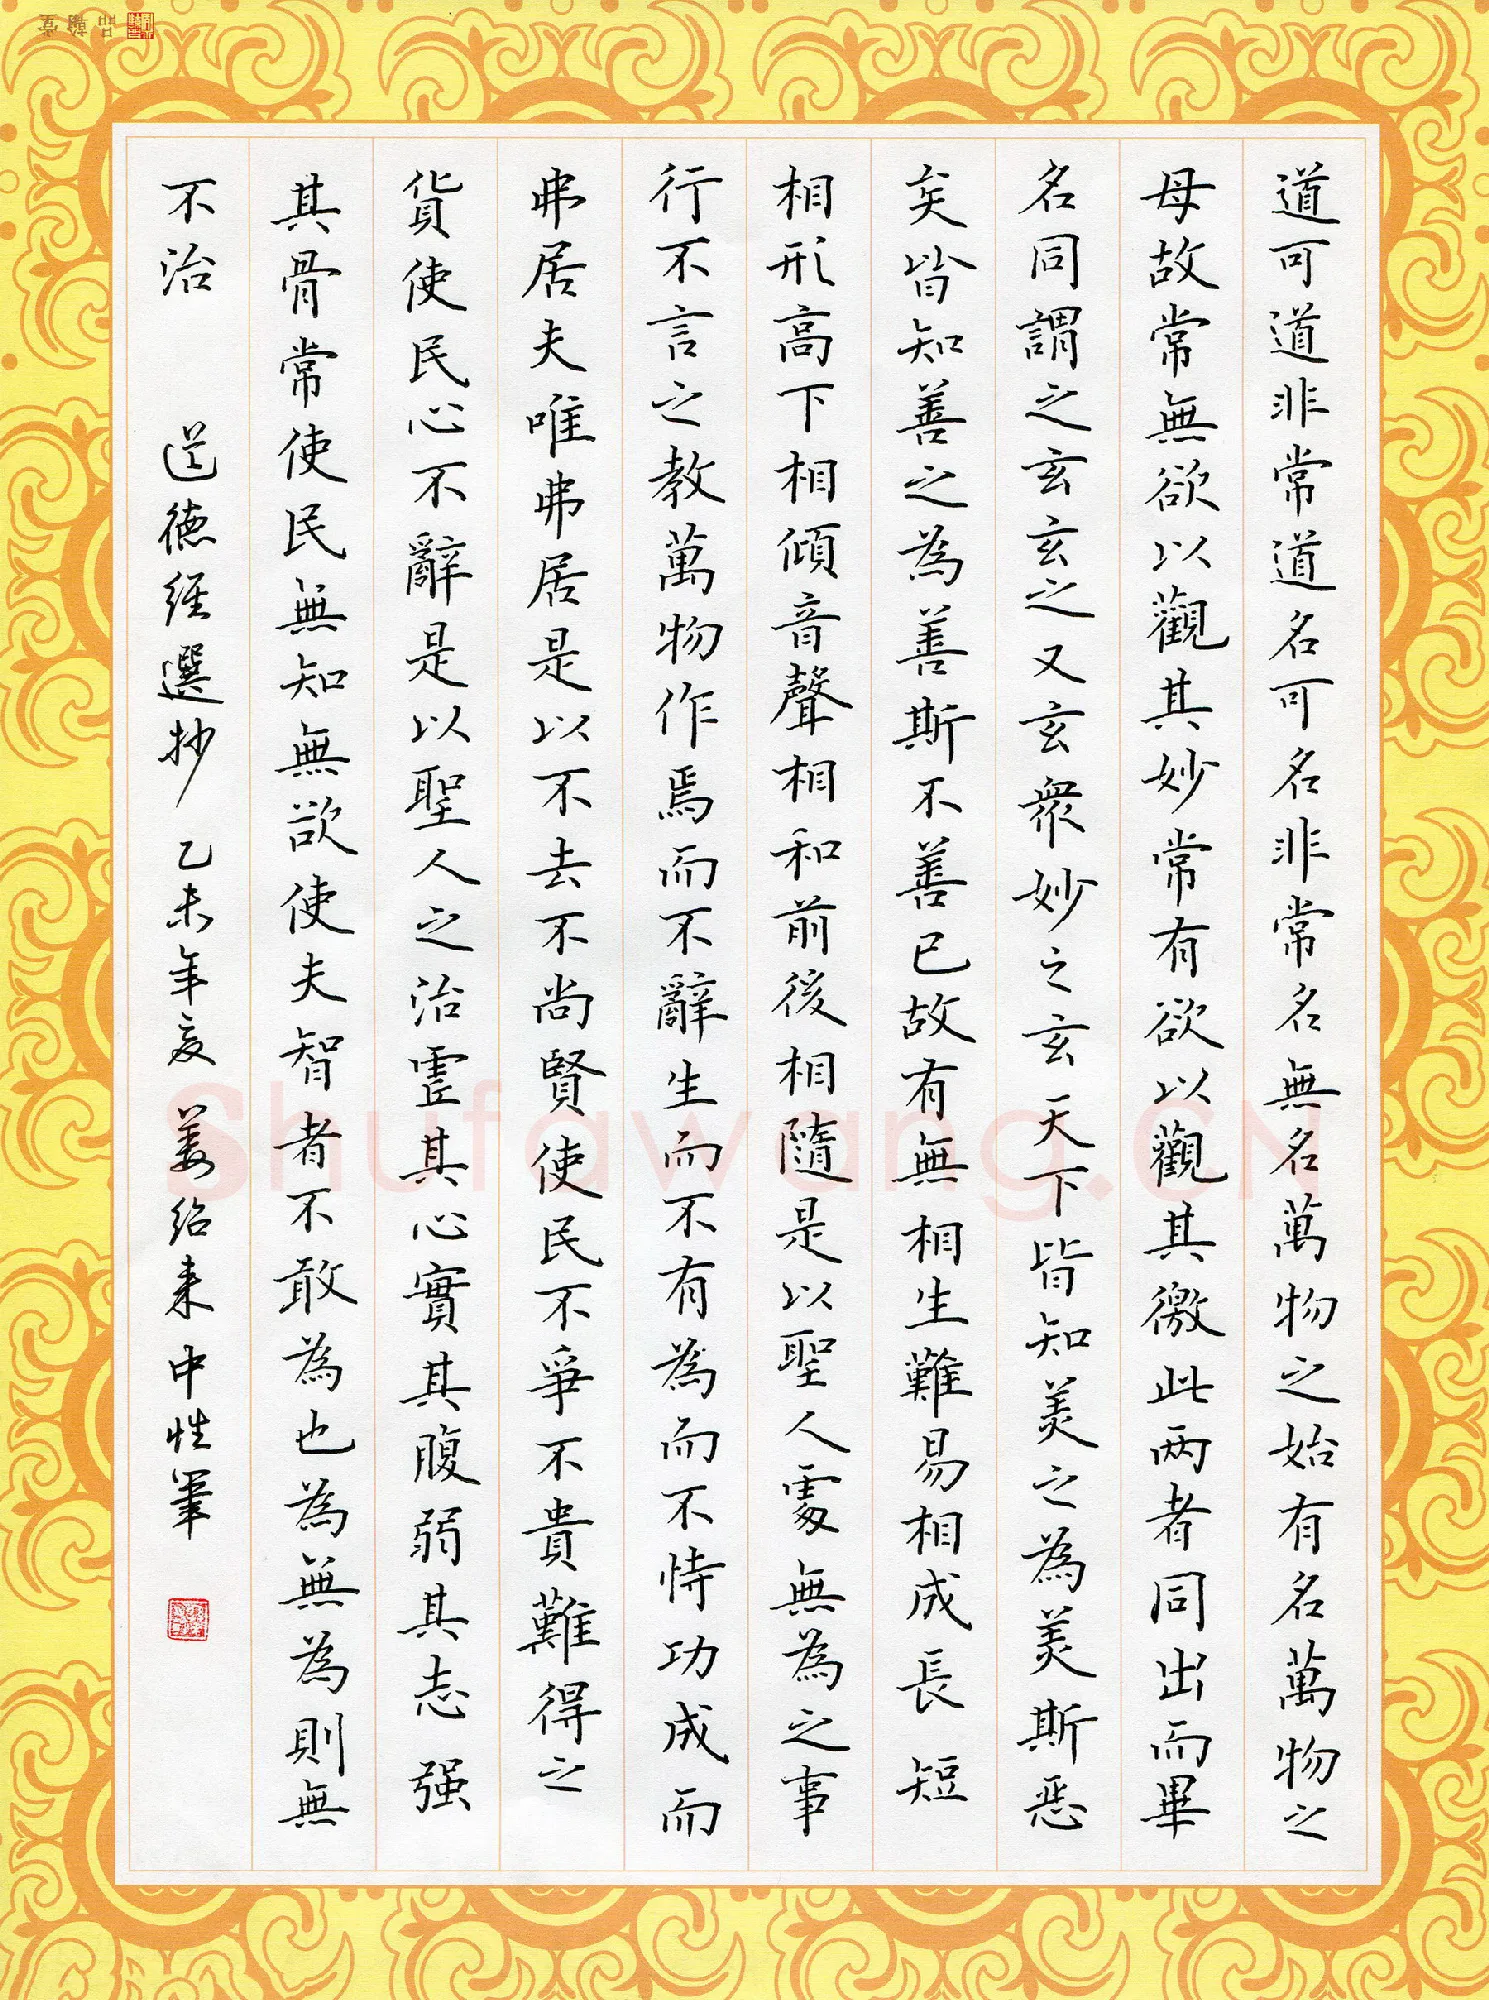 道可道非常道名可名非常名無名萬物之始有名萬物之
母故常無欲以觀其妙常有欲以觀其徼此兩者同出而畢
名同謂之玄玄之又玄衆妙之玄天下皆知美之為美斯惡
矣皆知善之為善斯不善已故有無相生難易相成長短
相形高下相傾音聲相和前後相隨是以聖人處無為之事
行不言之教萬物作焉而不辭生而不有為而不恃功成而
弗居夫唯弗居是以不去不尚賢使民不爭不貴難得之
貨使民心不辭是以聖人之治虛其心實其腹弱其志强
其骨常使民無知無欲使夫智者不敢為也為無為則無
不治 道德經選抄 乙未年夏 姜紹来中性筆
Shufawang.CN